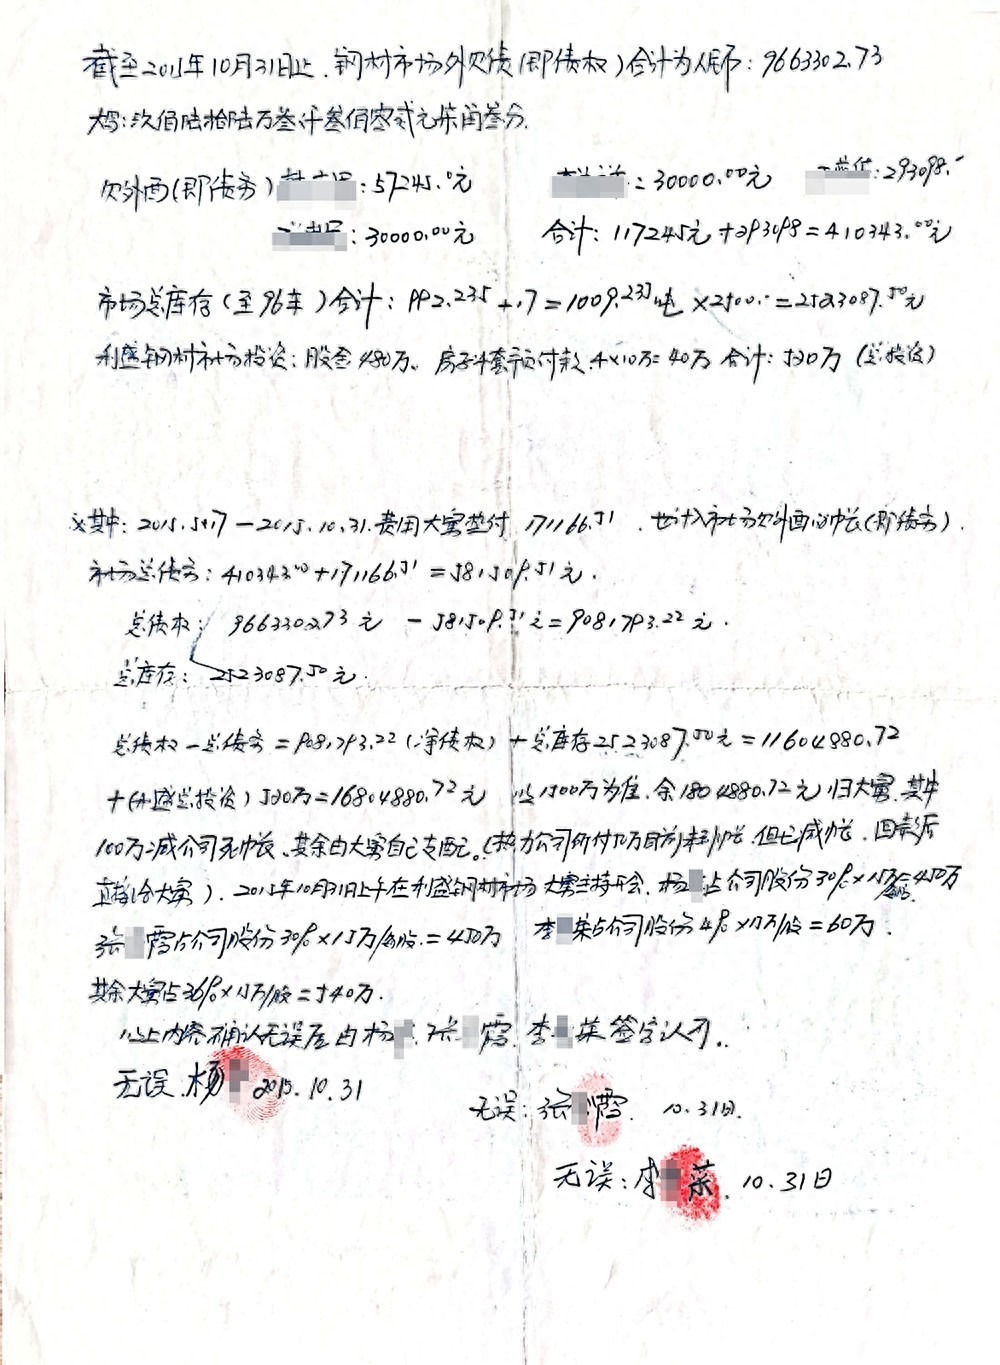 截至2015年10月31日止.钢材市场外欠债(即债权)合计为人民币:9663302.73
大写:玖佰陆拾陆万叁仟叁佰零贰元柒角叁分.
欠外面(即债务) :57245.⁰元 =30000.00元 :293098.-
:30000.00元 合计:117245元+293098=410343.⁰⁰元
市场总库存(至96车)合计:992.235+17=1009.235吨×2500.-=2523087.50元
利盛钢材市场投资:股金480万、房子4套预付款.4×10万=40万 合计:520万(总投资)
※其中:2015.5.17-2015.10.31.费用大寓垫付 171166.51.也计入市场欠外面的帐(即债务).
市场总债务:410343.⁰⁰+171166.51=581509.51元.
总债权: 9663302.73元 -581509.51元=9081793.22元.
总库存: 2523087.50元.
总债权-总债务=9081793.22(净债权)+总库存2523087.50元=11604880.72
+(利盛总投资)520万=16804880.72元 以1500万为准.余1804880.72元归大寓.其中
100万减公司死帐、其余由大寓自己支配.(热力公司所付 万目前未到帐.但已减帐.回款后
直接给大寓).2015年10月31日上午在利盛钢材市场 大寓主持开会.杨 占公司股份30%×15万/股=450万
张 霞占公司股份30%×15万/每股.=450万 李 荣占公司股份4%×15万/股=60万.
其余大寓占36%×15万/股=540万.
以上内容确认无误后由杨 .张 霞.李 荣签字认可..
无误.杨 2015.10.31
无误:张 霞. 10.31日.
无误:李 荣. 10.31日